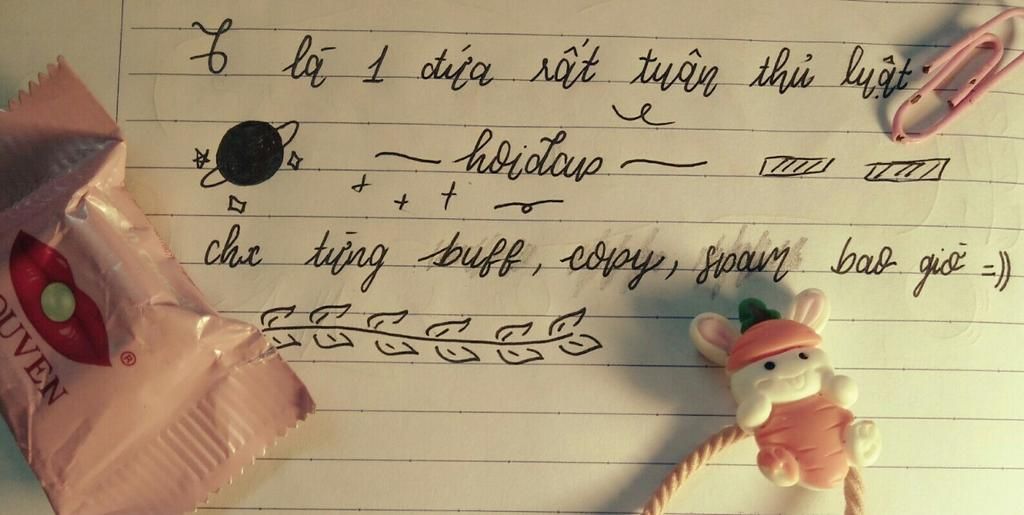 T là 1 đứa rất tuân thủ luật
hoidap
chx từng buff, copy, spam bao giờ =))
OUVEN
®